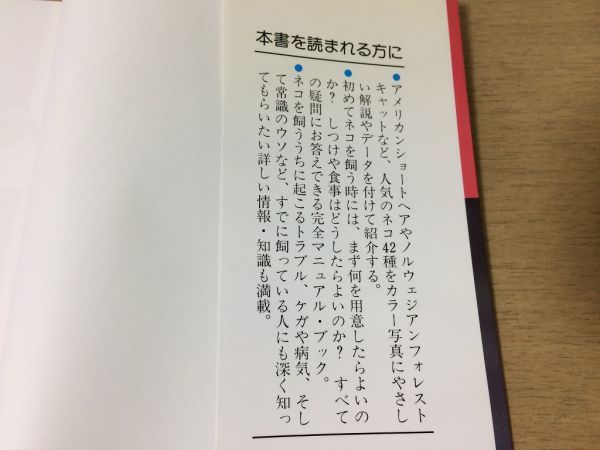 本書を読まれる方に
●アメリカンショートヘアやノルウェジアンフォレスト
キャットなど、人気のネコ42種をカラー写真にやさし
い解説やデータを付けて紹介する。
●初めてネコを飼う時には、まず何を用意したらよいの
か？ しつけや食事はどうしたらよいのか？ すべて
の疑問にお答えできる完全マニュアル・ブック。
●ネコを飼ううちに起こるトラブル、ケガや病気、そし
て常識のウソなど、すでに飼っている人にも深く知っ
てもらいたい詳しい情報・知識も満載。